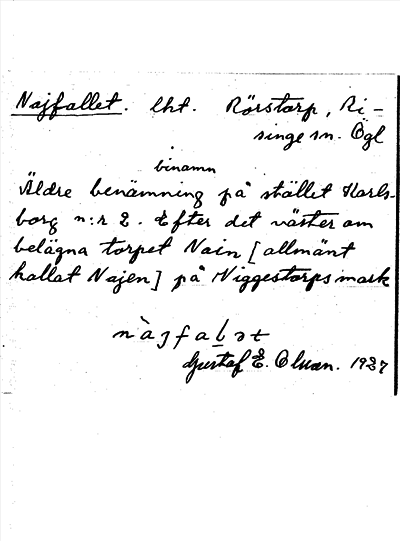 Najfallet. lht. Rörstorp, Ri-
singe sn. Ögl
binamn
Äldre benämning på stället Karls-
borg n:r 2. Efter det väster om
belägna torpet Nain [allmänt
kallat Najen] på Niggestorps mark
Gustaf E. Olsson. 1927